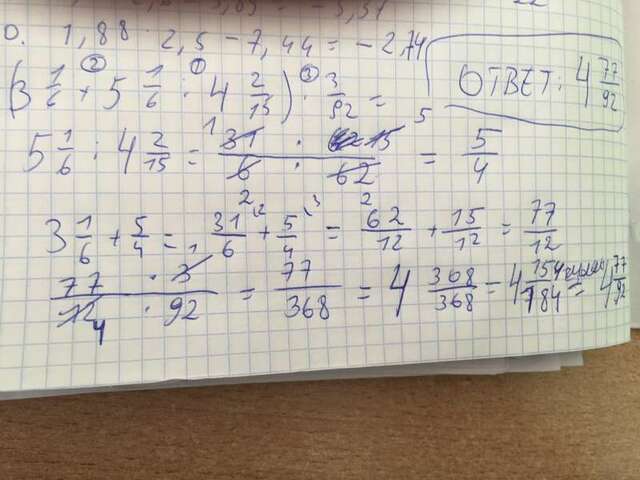 0. 1,88 · 2,5 - 7,44 = - 2,74
(3 1/6 + 5 1/6 : 4 2/15) · 3/92 =
ОТВЕТ: 4 77/92
5 1/6 : 4 2/15 = 31 · 15 / 6 · 62 = 5/4
3 1/6 + 5/4 = 31/6 + 5/4 = 62/12 + 15/12 = 77/12
77 · 3 / 12 · 92 = 77/368 = 4 368/368 = 4 154/184 = 4 77/92